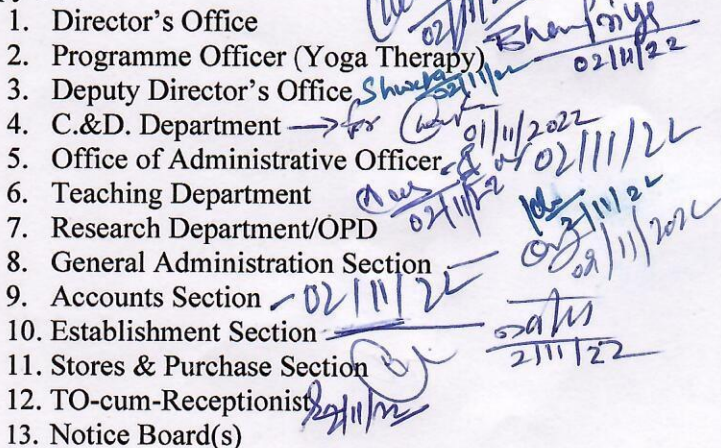 1. Director's Office
02/11/22
2. Programme Officer (Yoga Therapy)
02/11/22
3. Deputy Director's Office
02/11/22
4. C.&D. Department → for
01/11/2022
5. Office of Administrative Officer
02/11/22
6. Teaching Department
02/11/22
7. Research Department/OPD
2/11/22
8. General Administration Section
02/11/2022
9. Accounts Section - 02/11/22
10. Establishment Section
2/11/22
11. Stores & Purchase Section
12. TO-cum-Receptionist
2/11/22
13. Notice Board(s)